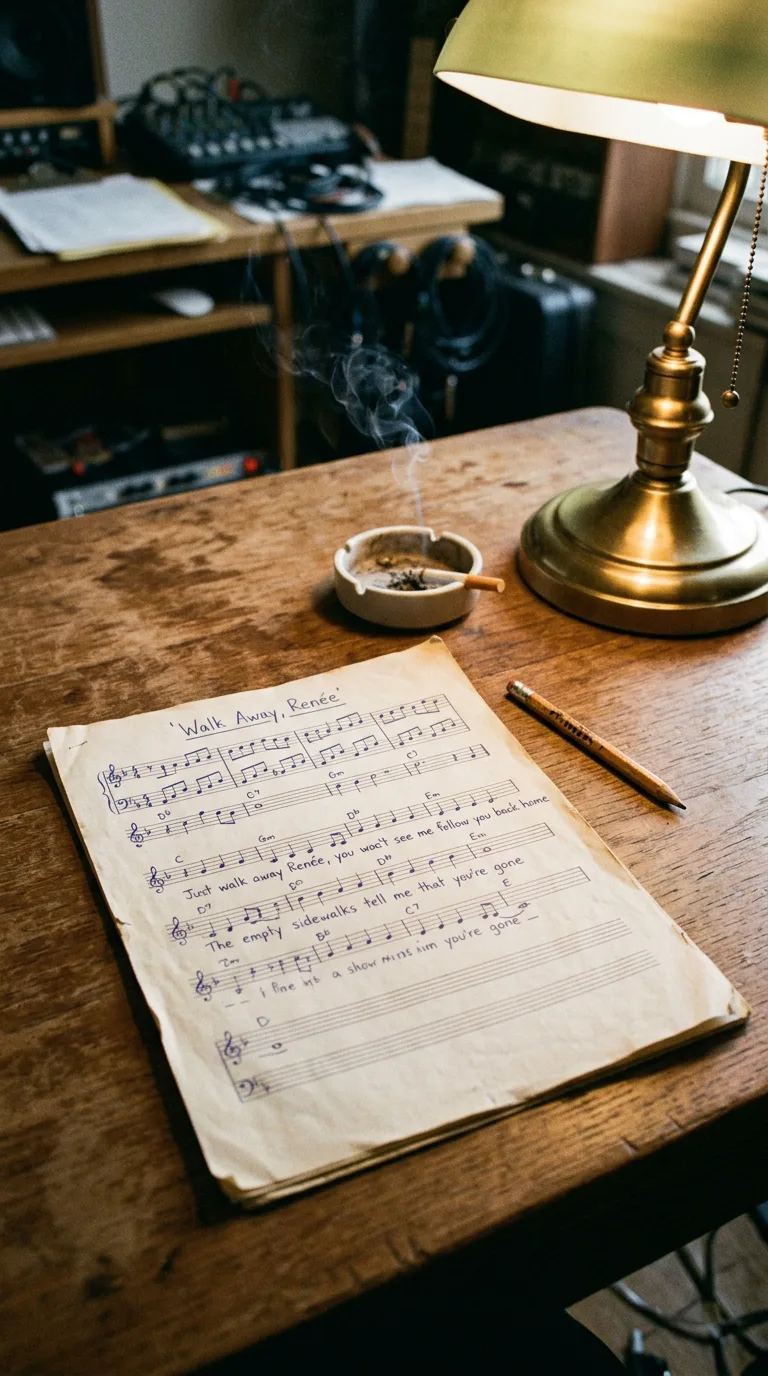 'Walk Away, Renée'
D6 C7 Gm C7
C Gm Db Em
Just walk away Renée, you won't see me follow you back home
D7 Db Em
The empty sidewalks tell me that you're gone
Bb C7 E
i a show you're gone
D